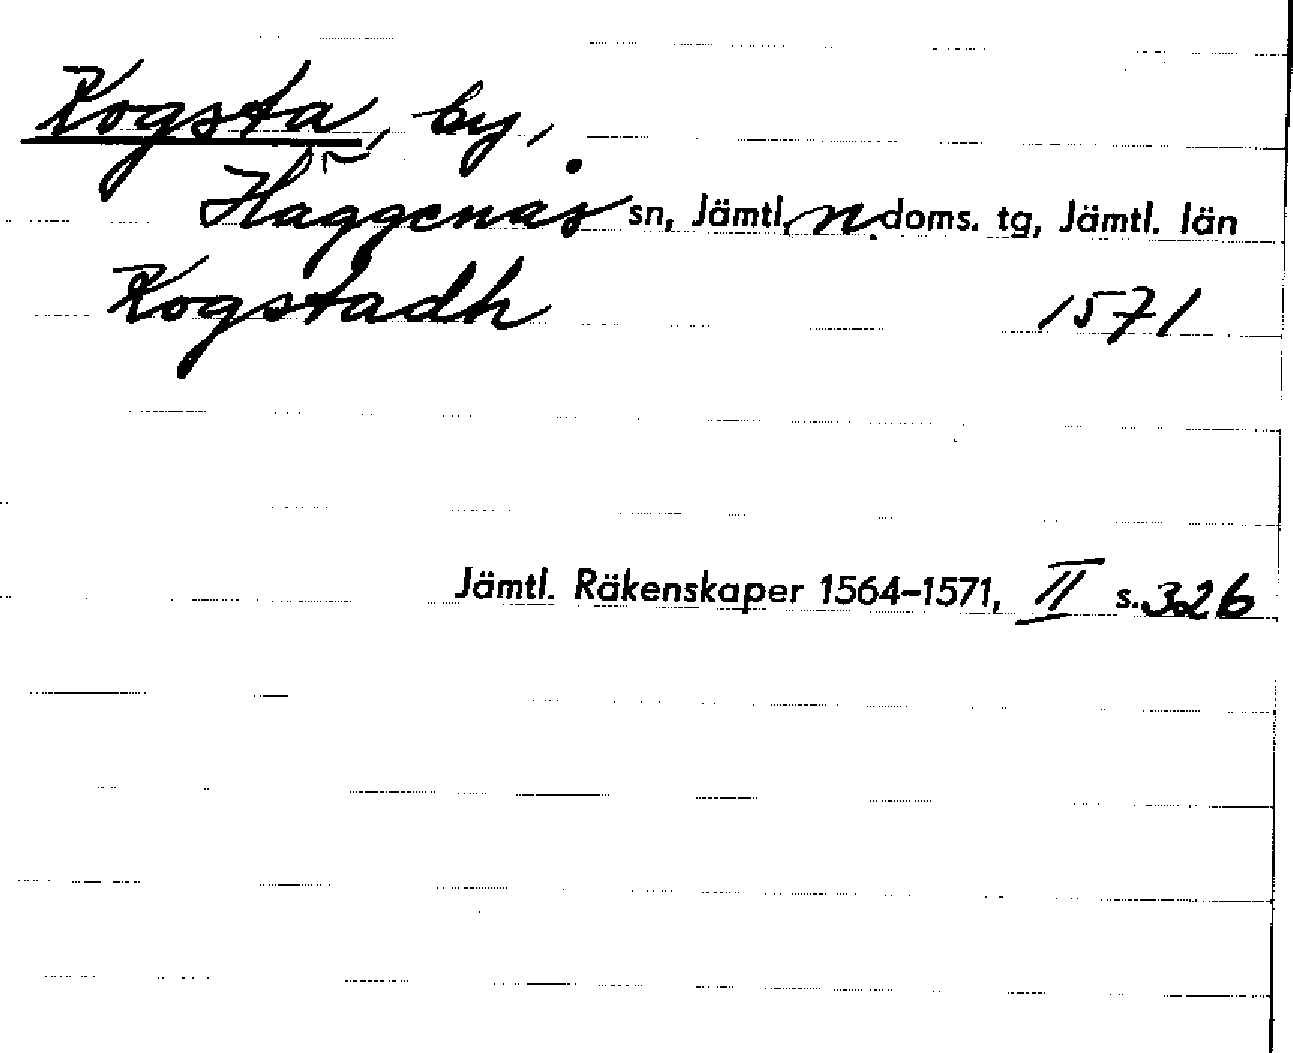 Kogsta, by,
Häggenås sn, Jämtl. n. doms. tg, Jämtl. län
Kogstadh 1571
Jämtl. Räkenskaper 1564–1571, II s. 326